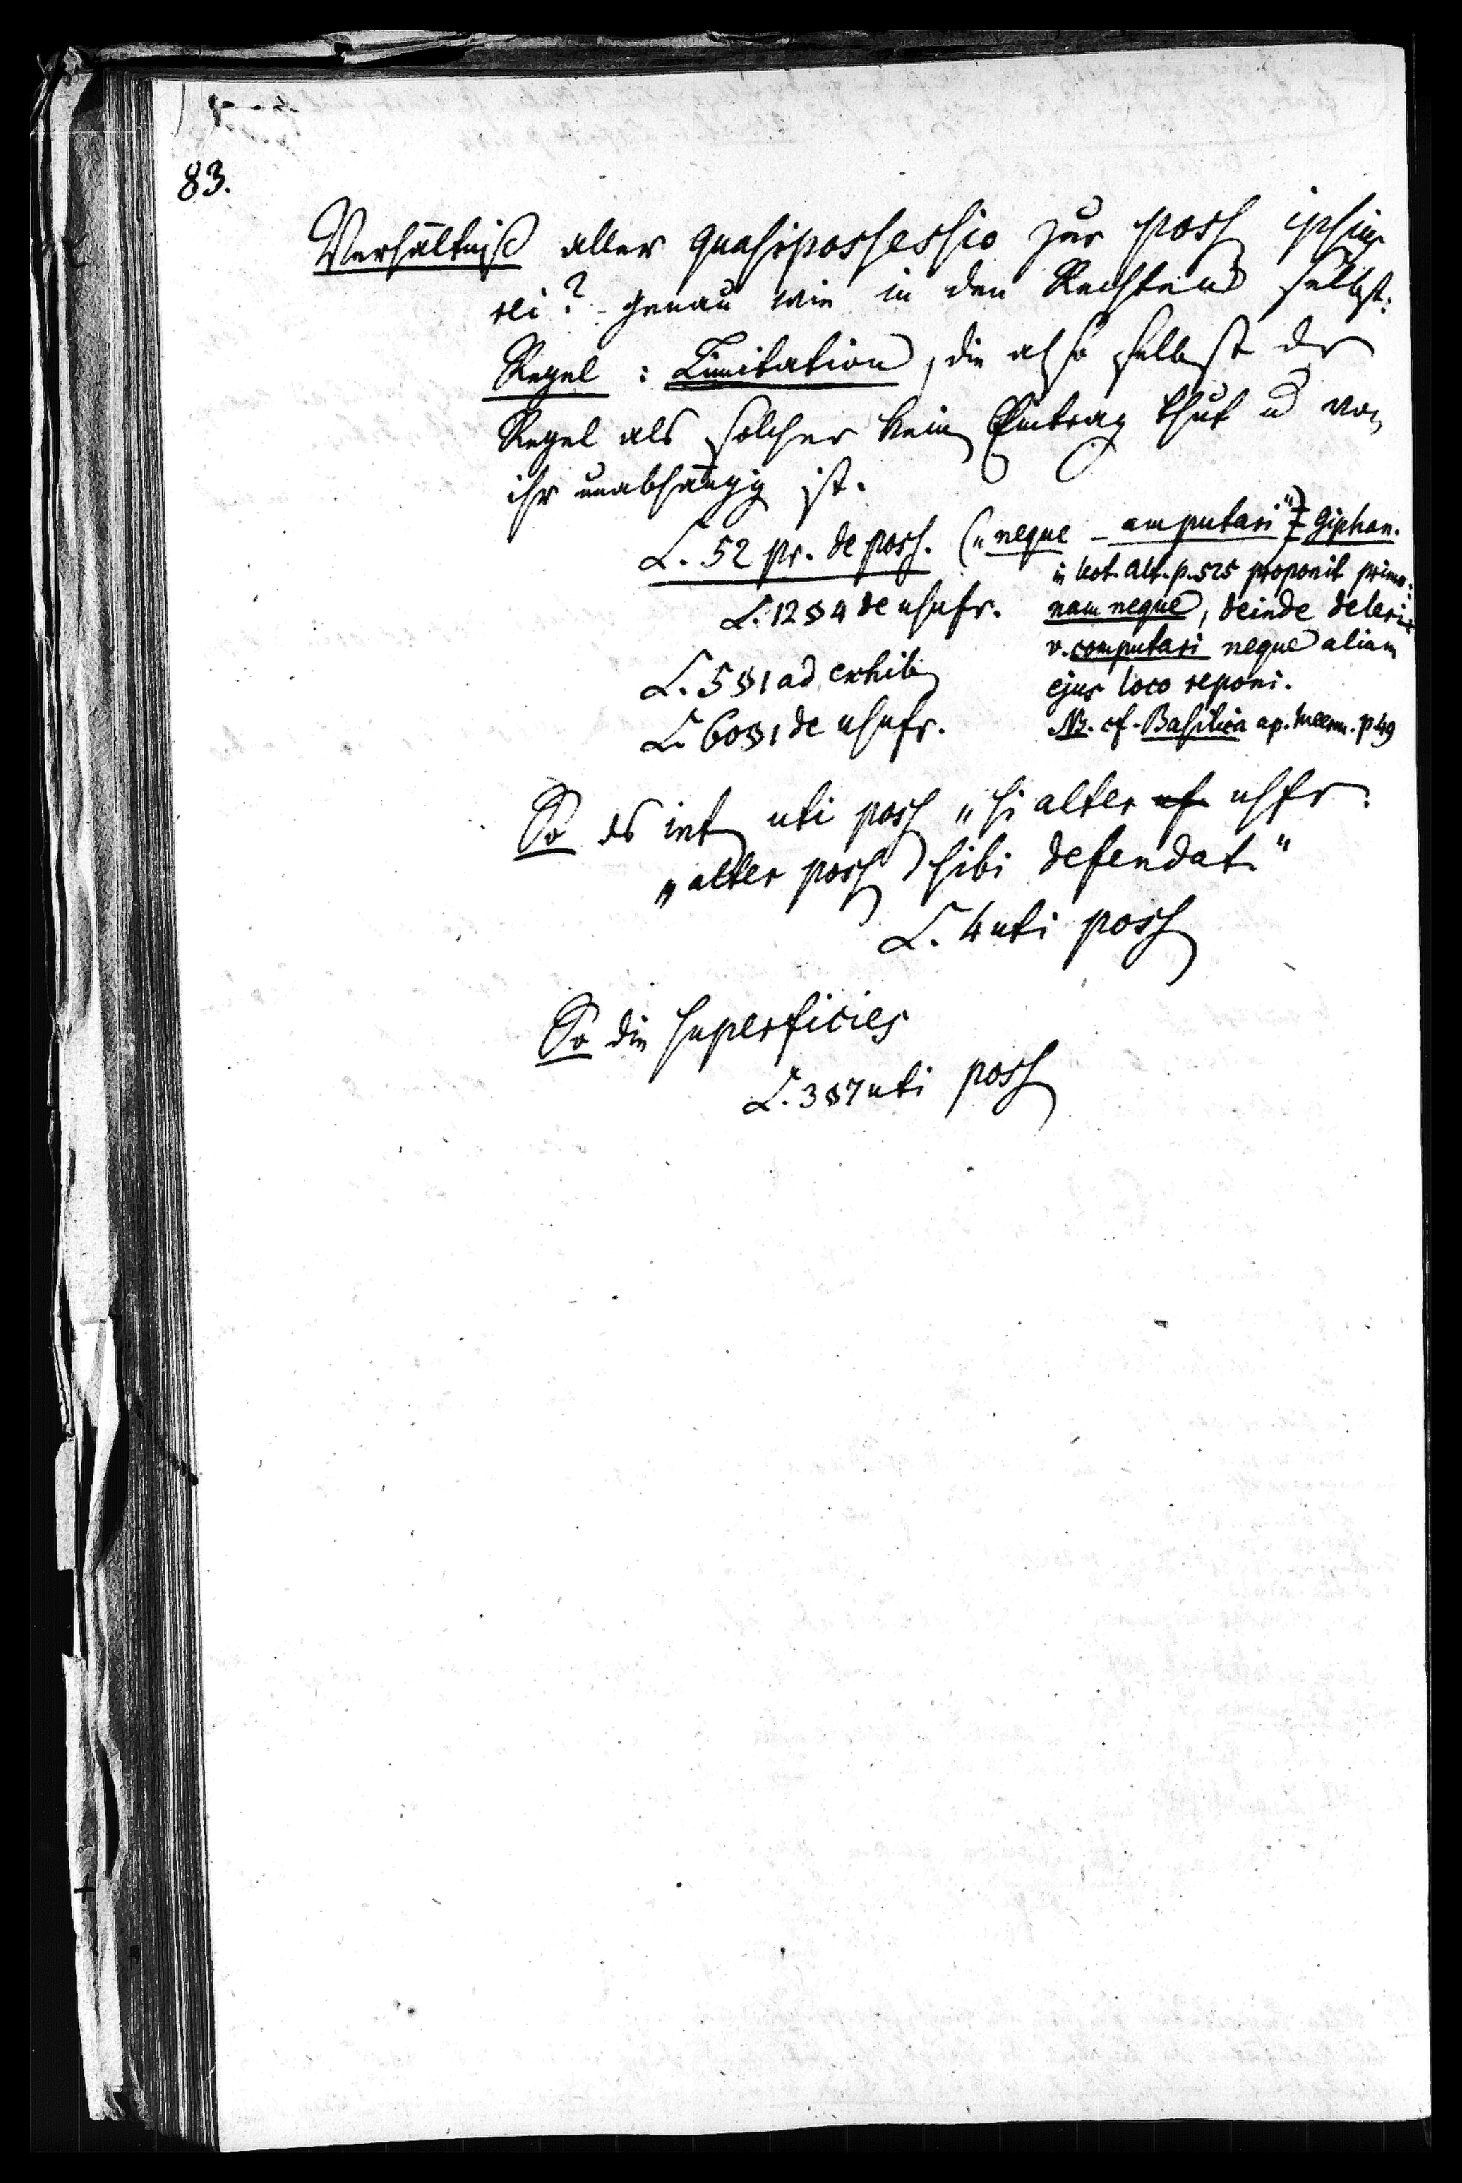 83.
Verhältniß aller quasipossessio zur poss ipsius
rei? - genau wie in den Rechten selbst:
Regel : Limitation, die also selbst der
Regel als solcher kein Eintrag thut u von
ihr unabhängig ist.
L. 52 pr. de poss. („neque - amputari") Giphan.
in Not. Alt. p. 525 proponit primo:
L. 12 § 4 de usufr.
nam neque, deinde deleri
v. computari neque aliam
L. 5 § 1 ad exhib
ejus loco reponi.
L. 60 § 1 de usufr.
Nb. cf. Basilica ap. Meerm. p 49
So das int uti poss „si alter usfr.
„alter poss sibi defendat."
L. 4 uti poss
So die superficies
L. 3 § 7 uti poss